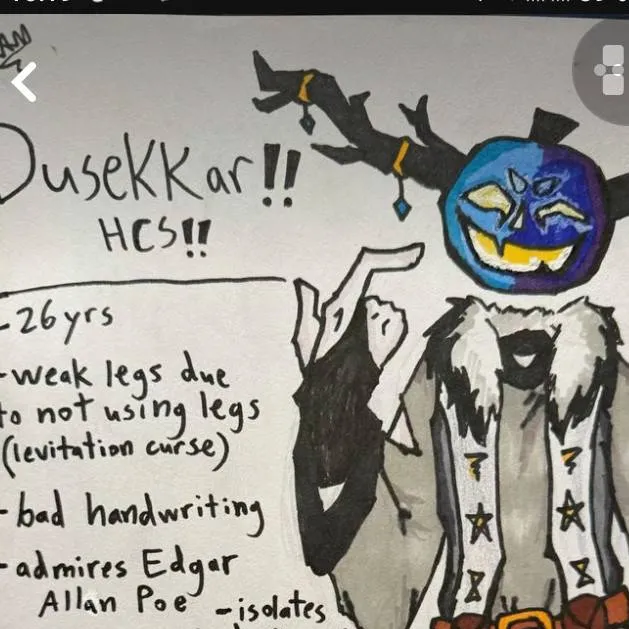 Dusekkar!!
HCS!!
-26yrs
-weak legs due
to not using legs
(levitation curse)
-bad handwriting
-admires Edgar
Allan Poe -isolates